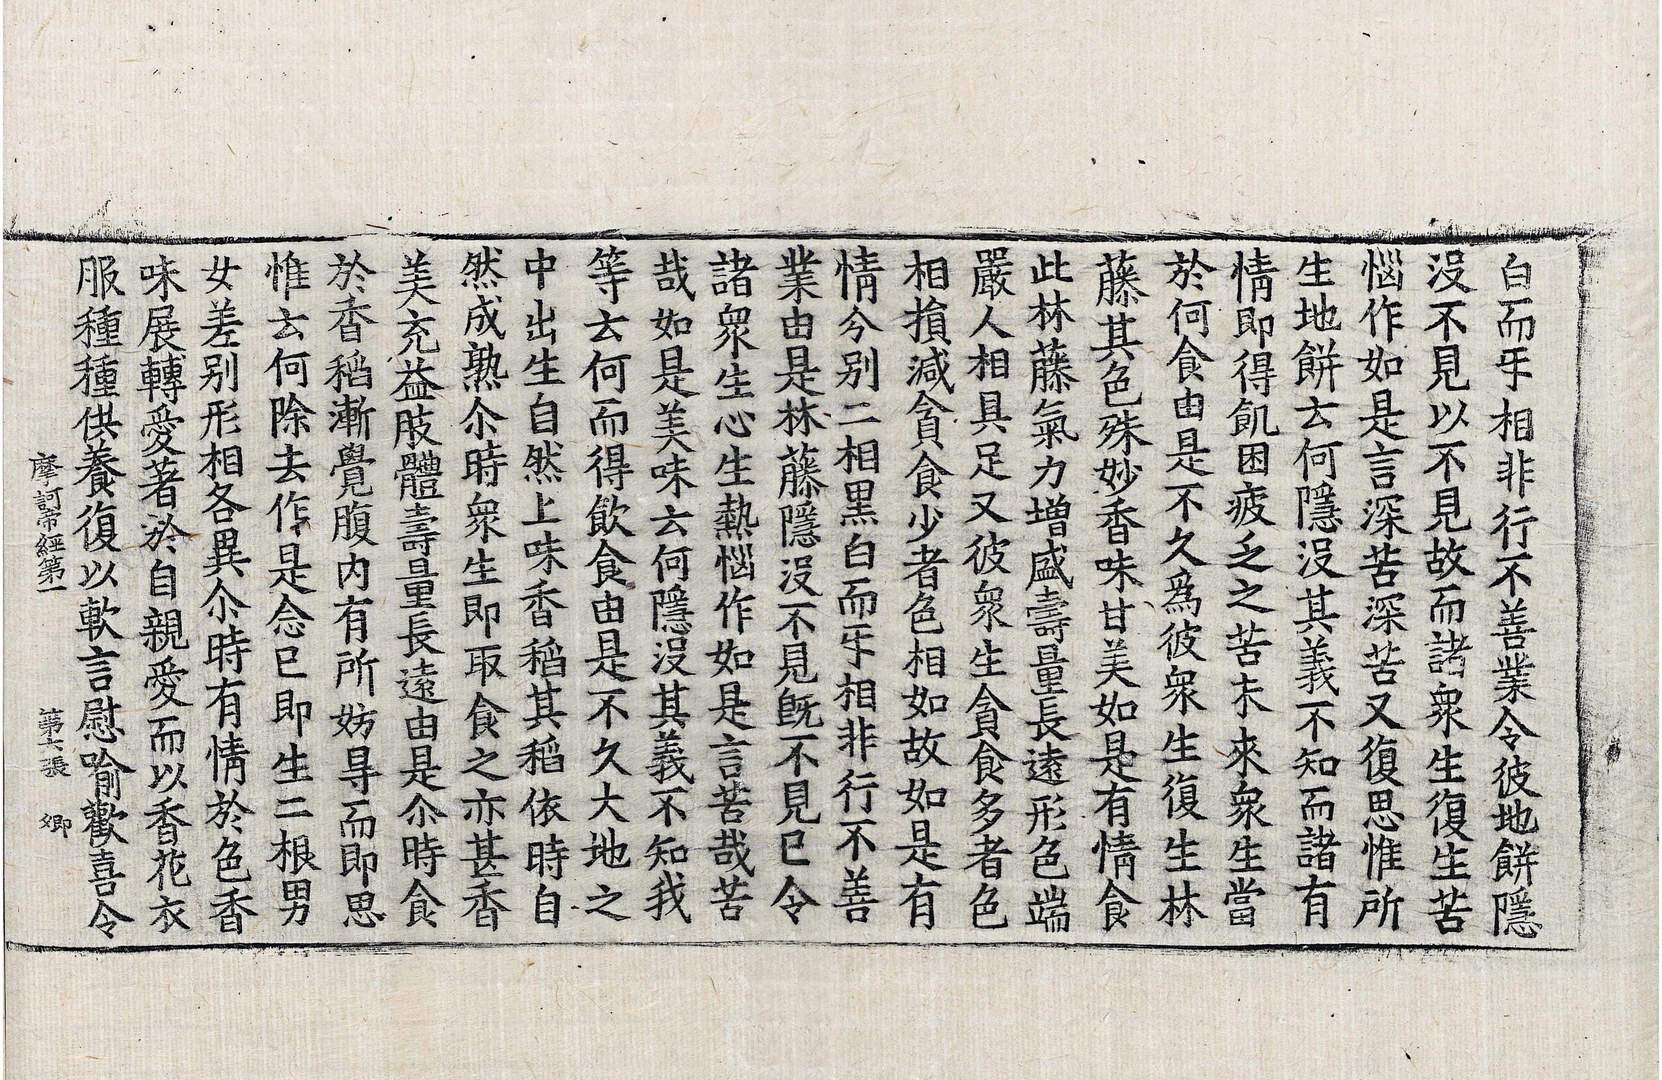 白而㸦相非行不善業令彼地餅隱
沒不見以不見故而諸衆生復生苦
惱作如是言深苦深苦又復思惟所
生地餅云何隱沒其義不知而諸有
情即得飢困疲乏之苦未來衆生當
於何食由是不久爲彼衆生復生林
藤其色殊妙香味甘美如是有情食
此林藤氣力增盛壽量長遠形色端
嚴人相具足又彼衆生貪食多者色
相損減貪食少者色相如故如是有
情分別二相黑白而㸦相非行不善
業由是林藤隱沒不見旣不見已令
諸衆生心生熱惱作如是言苦哉苦
哉如是美味云何隱沒其義不知我
等云何而得飮食由是不久大地之
中出生自然上味香稻其稻依時自
然成熟尒時衆生即取食之亦甚香
美充益肢體壽量長遠由是尒時食
於香稻漸覺腹內有所妨㝵而即思
惟云何除去作是念已即生二根男
女差别形相各異尒時有情於色香
味展轉愛著於自親愛而以香花衣
服種種供養復以軟言慰喻歡喜令
摩訶帝經第一 第六張 卿